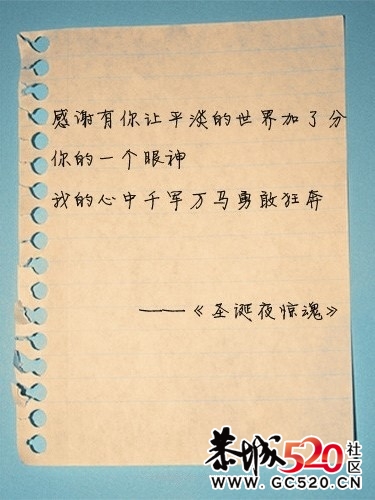 感谢有你让平淡的世界加了分
你的一个眼神
我的心中千军万马勇敢狂奔
——《圣诞夜惊魂》
恭城520社区
WWW.GC520.CN